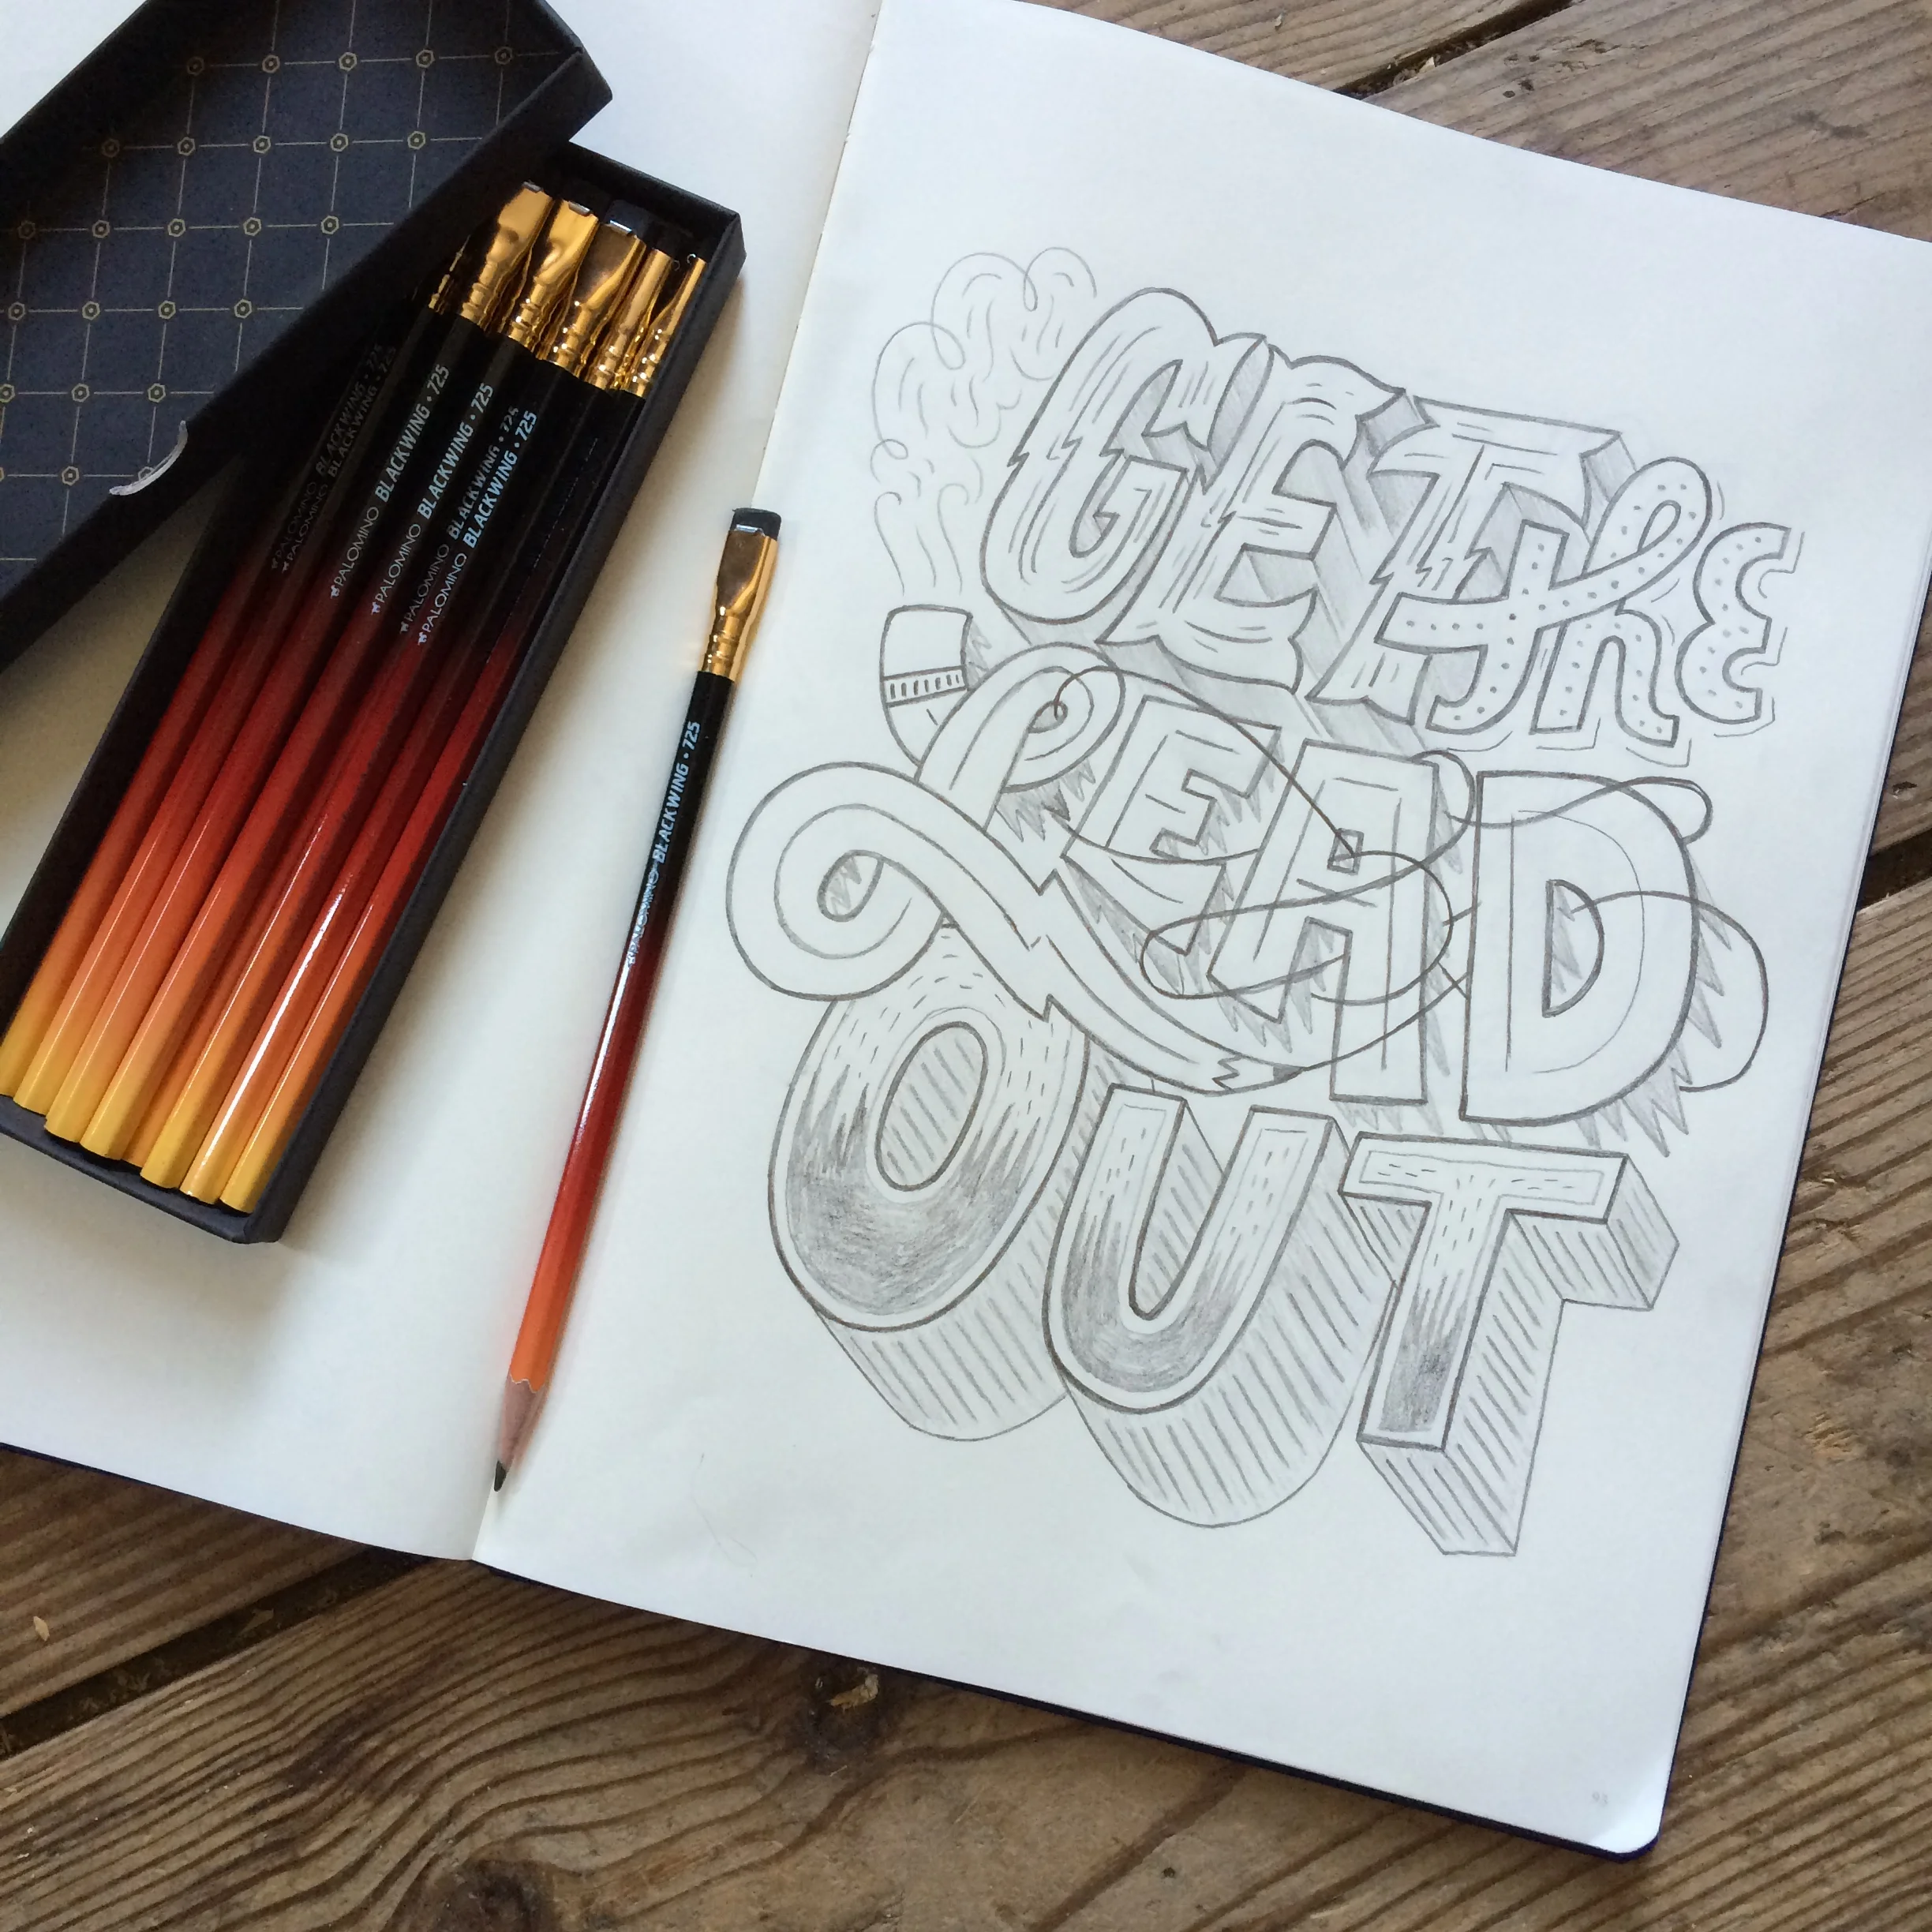 GET the
LEAD
OUT
PALOMINO BLACKWING • 725
PALOMINO BLACKWING • 725
PALOMINO BLACKWING • 725
PALOMINO BLACKWING • 725
PALOMINO BLACKWING • 725
PALOMINO BLACKWING • 725
PALOMINO BLACKWING • 725
93